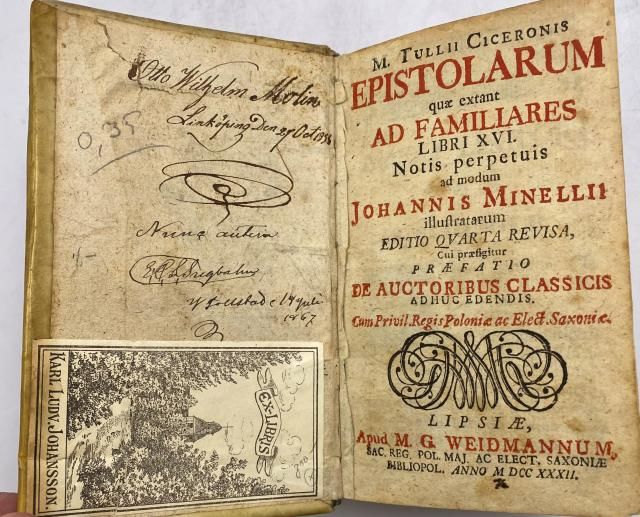 Otto Wilhelm Molin
Linköping Den 27 Oct
0,35
Nunc autem
1867
EX-LIBRIS
KARL LUDV. JOHANSSON.
M. TULLII CICERONIS
EPISTOLARUM
quæ extant
AD FAMILIARES
LIBRI XVI.
Notis perpetuis
ad modum
JOHANNIS MINELLII
illustratarum
EDITIO QVARTA REVISA,
Cui præfigitur
PRÆFATIO
DE AUCTORIBUS CLASSICIS
ADHUC EDENDIS.
Cum Privil. Regis Poloniæ ac Elect. Saxoniæ.
LIPSIÆ,
Apud M. G. WEIDMANNUM,
SAC. REG. POL. MAJ. AC ELECT. SAXONIÆ
BIBLIOPOL. ANNO MDCCXXXII.